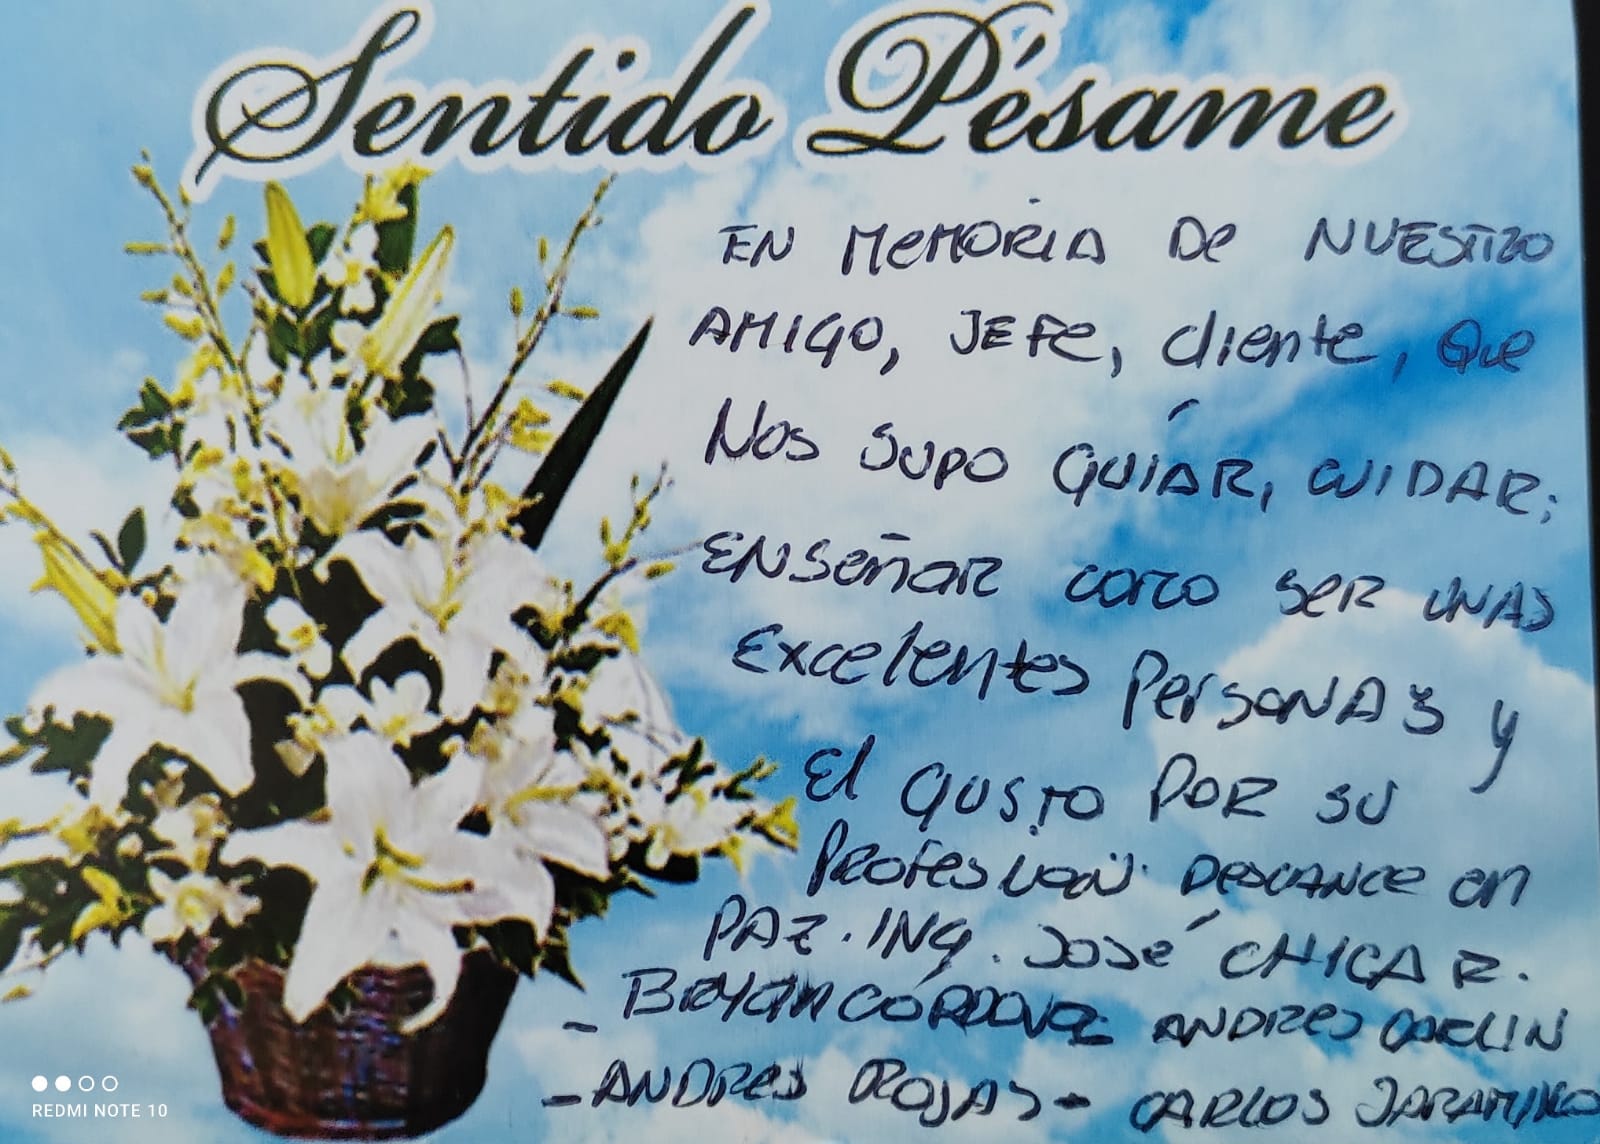 Sentido Pésame
EN MEMORIA DE NUESTRO
AMIGO, JEFE, cliente, que
NOS SUPO GUÍAR, CUIDAR;
ENSEÑAR como SER UNAS
Excelentes PersonAs y
El GUSTO POR SU
PROFESION. DESCANCE en
PAZ. ING. JOSÉ CHICA R.
- BRYAN CÓRDOVA - ANDRES
- ANDRES ROJAS - CARLOS JARAMILLO
REDMI NOTE 10